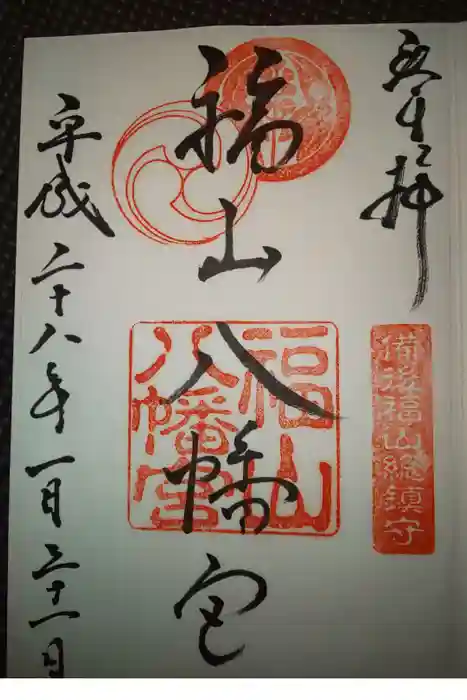 奉拝
備後福山総鎮守
福山八幡宮
福山
八幡宮
平成二十八年一月三十一日